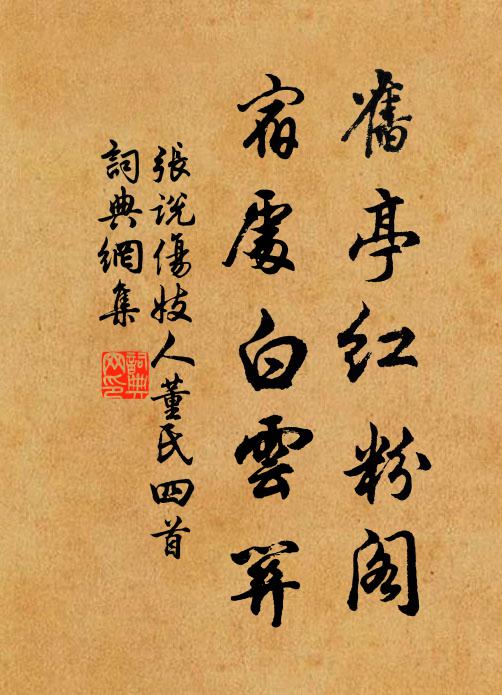 舊亭紅粉閣
宿處白雲關
張說傷妓人董氏四首
詞典網集
詞典
网印